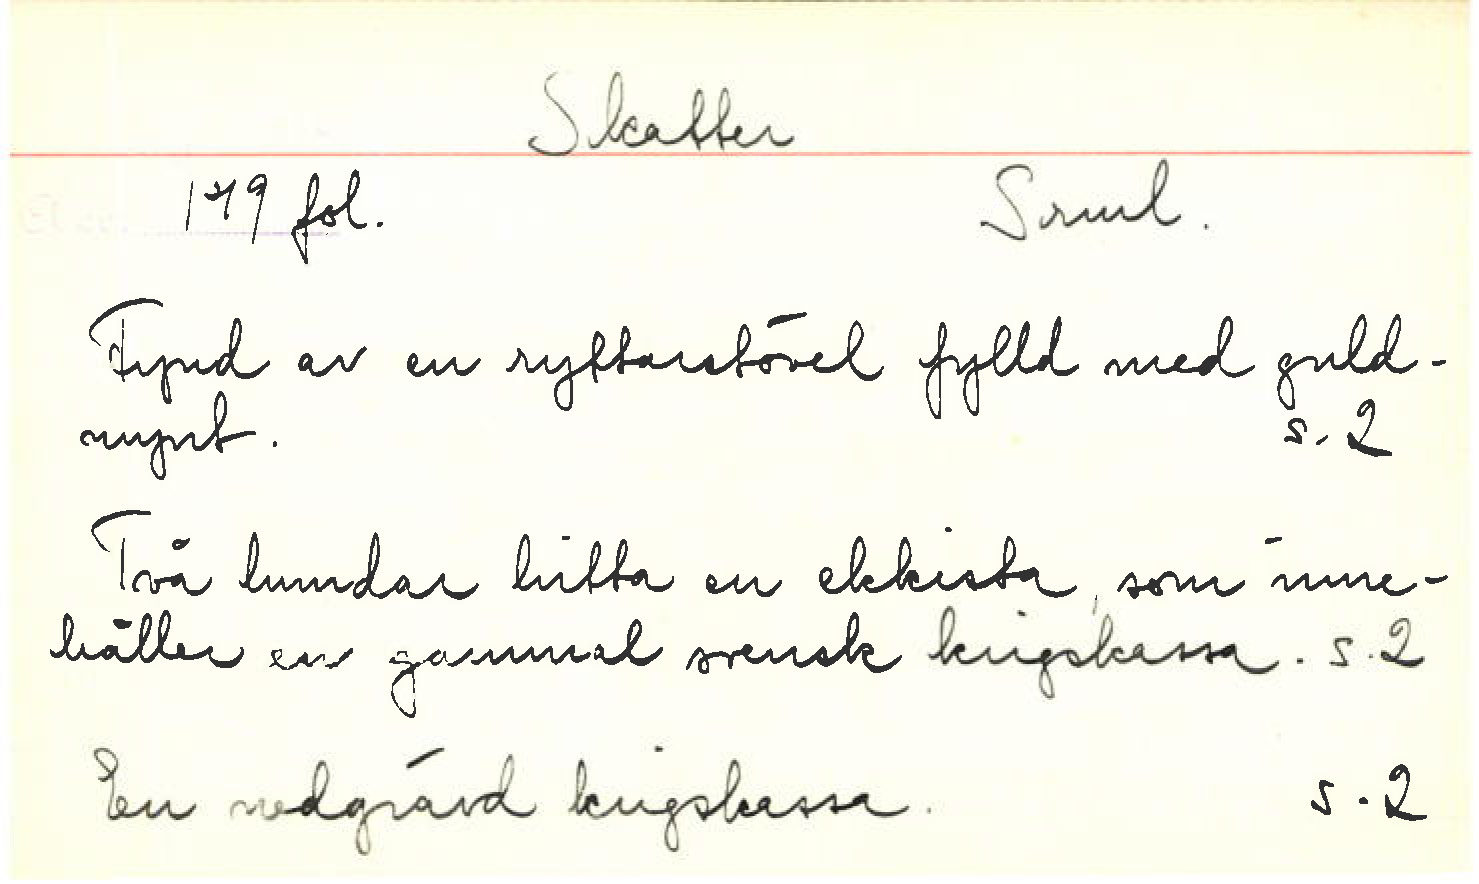 Skatter
179 fol. Smål.
Fynd av en ryttarstövel fylld med guld-
mynt. s. 2
Två hundar hitta en ekkista, som inne-
håller en gammal svensk krigskassa. s. 2
En nedgrävd krigskassa. s. 2